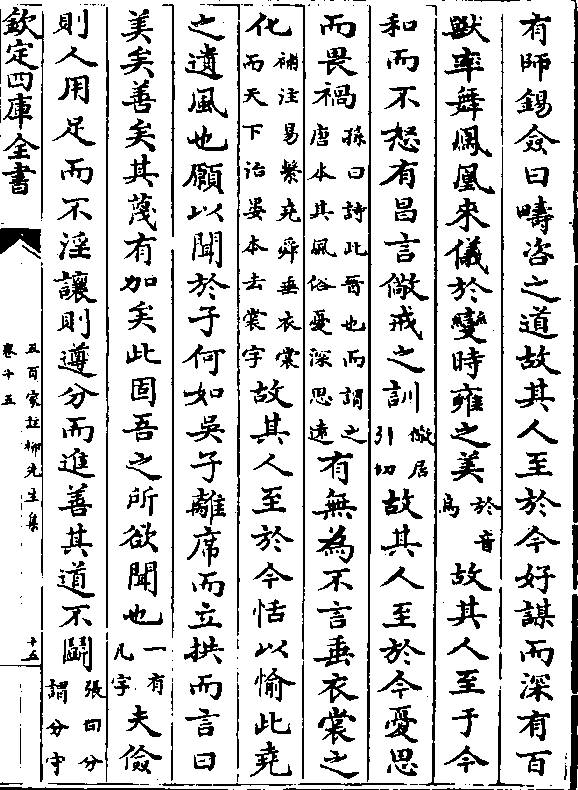 有師錫僉曰疇咨之道故其人至於今好謀而深有百
獸率舞鳳凰來儀於變時雍之美於音烏故其人至于今
和而不怒有昌言儆戒之訓儆居引切故其人至於今憂思
而畏禍孫曰詩此晉也而謂之唐本其風俗憂深思遠有無為不言垂衣裳之
化補注易繫堯舜垂衣裳而天下治晏本去裳字故其人至於今恬以愉此堯
之遺風也願以聞於子何如吳子離席而立拱而言曰
美矣善矣其蔑有加矣此固吾之所欲聞也一有凡字夫儉
則人用足而不淫讓則遵分而進善其道不鬬張曰分謂分守
欽定四庫全書
五百家註柳先生集
卷十五
十五